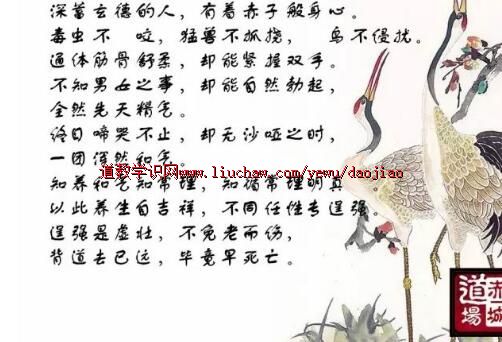 深蓄玄德的人，有着赤子般身心。
毒虫不 咬，猛兽不抓挠， 鸟不侵扰。
通体筋骨舒柔，却能紧握双手。
不知男女之事，却能自然勃起，
全然先天精气。
终日啼哭不止，却无沙哑之时，
一团浑然和气。
道教学识网www.liuchaw.com/yewu/daojiao
知养和气知常理，知循常理明真
以此养生自吉祥，不同任性专逞强。
逞强是虚壮，不免老而伤，
背道去已远，毕竟早死亡。
赤城
道場